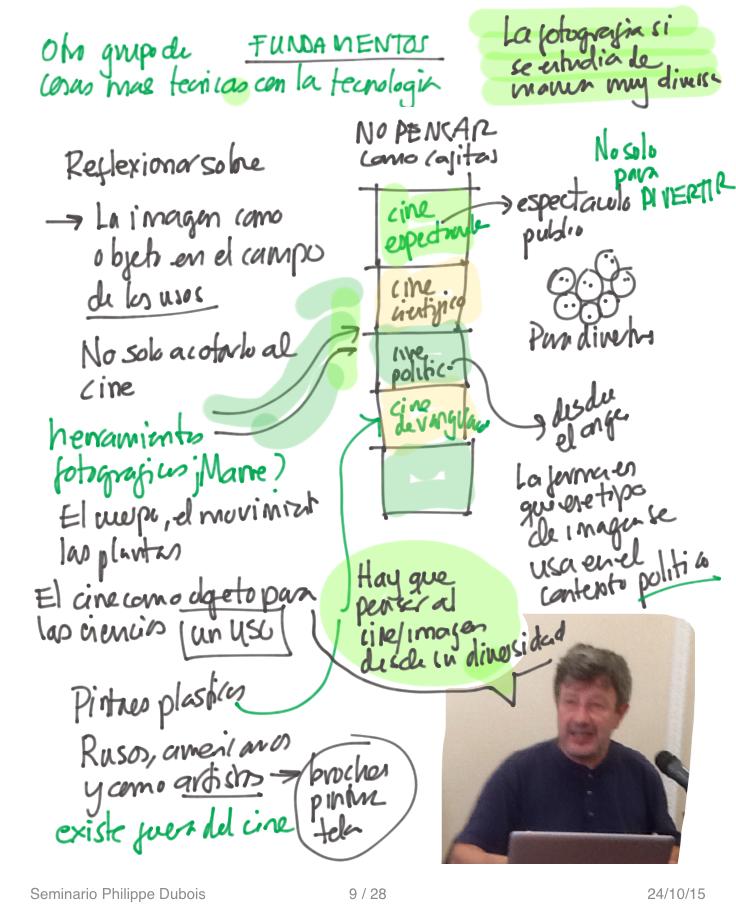 Otro grupo de
FUNDAMENTOS
cosas mas tecnicas con la tecnologia
La fotografia si
se estudia de
manera muy diversa
Reflexionar sobre
→ La imagen como
objeto en el campo
de los usos
No solo acotarlo al
cine
herramientas
fotograficas ¡Marre?
El cuerpo, el movimiento
las plantas
El cine como objeto para
las ciencias un uso
Pintores plasticos
Rusos, americanos
y como artistas →
existe fuera del cine
brochas
pintura
tela
NO PENSAR
como cajitas
cine
espectaculo
cine
cientifico
cine
politico
cine
de vanguardia
No solo
para
DIVERTIR
espectaculo
publico
Para divertir
desde
el
La forma en
que ese tipo
de imagen se
usa en el
contexto politico
Hay que
pensar al
cine/imagen
desde su diversidad
Seminario Philippe Dubois
9 / 28
24/10/15